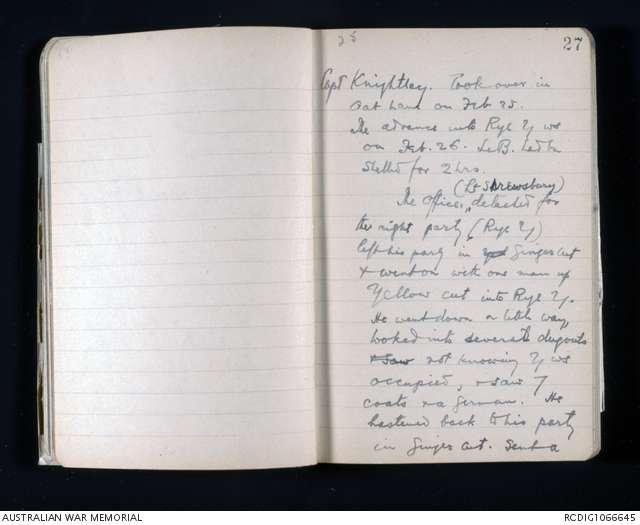 27
Capt Knightley. Took over in
Oat Lane on Feb 25.
The advance into Rye Ty was
on Feb. 26. Le B. had bn
shelled for 2 hrs.
(Lt Shrewsbury)
The officer, detached for
the right party (Rye Ty)
left his party in Ginger Cut
& went on with one man up
Yellow Cut into Rye Ty.
He went down a little way
looked into several dugouts
& saw not knowing if was
occupied, & saw 7
coats & a German. He
hastened back to his party
in Ginger Cut. Sent a
AUSTRALIAN WAR MEMORIAL
RCDIG1066645